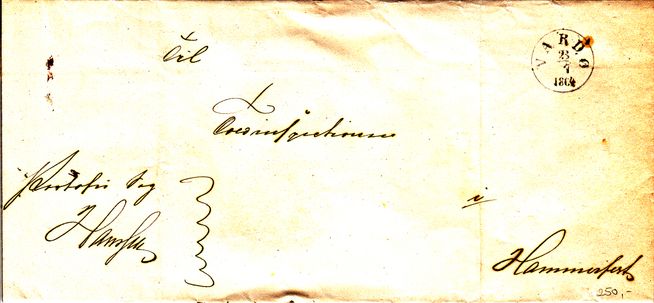 VARDØ
23
7
1864
Til
Toldinspectionen
Portofri Sag
Hansen
i
Hammerfest
250,-